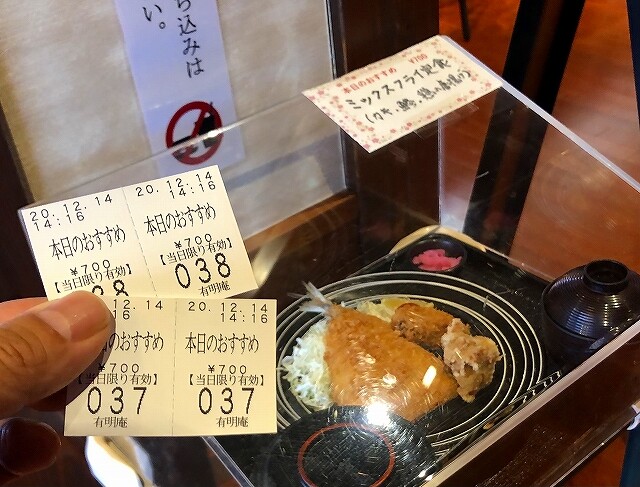 ち込みは
い。
本日のおすすめ ¥700
ミックスフライ定食
20.12.14
14:16
本日のおすすめ
¥700
【当日限り有効】
38
20.12.14
14:16
本日のおすすめ
¥700
【当日限り有効】
038
有明庵
12.14
14:16
すすめ
¥700
【当日限り有効】
037
有明庵
20.12.14
14:16
本日のおすすめ
¥700
【当日限り有効】
037
有明庵